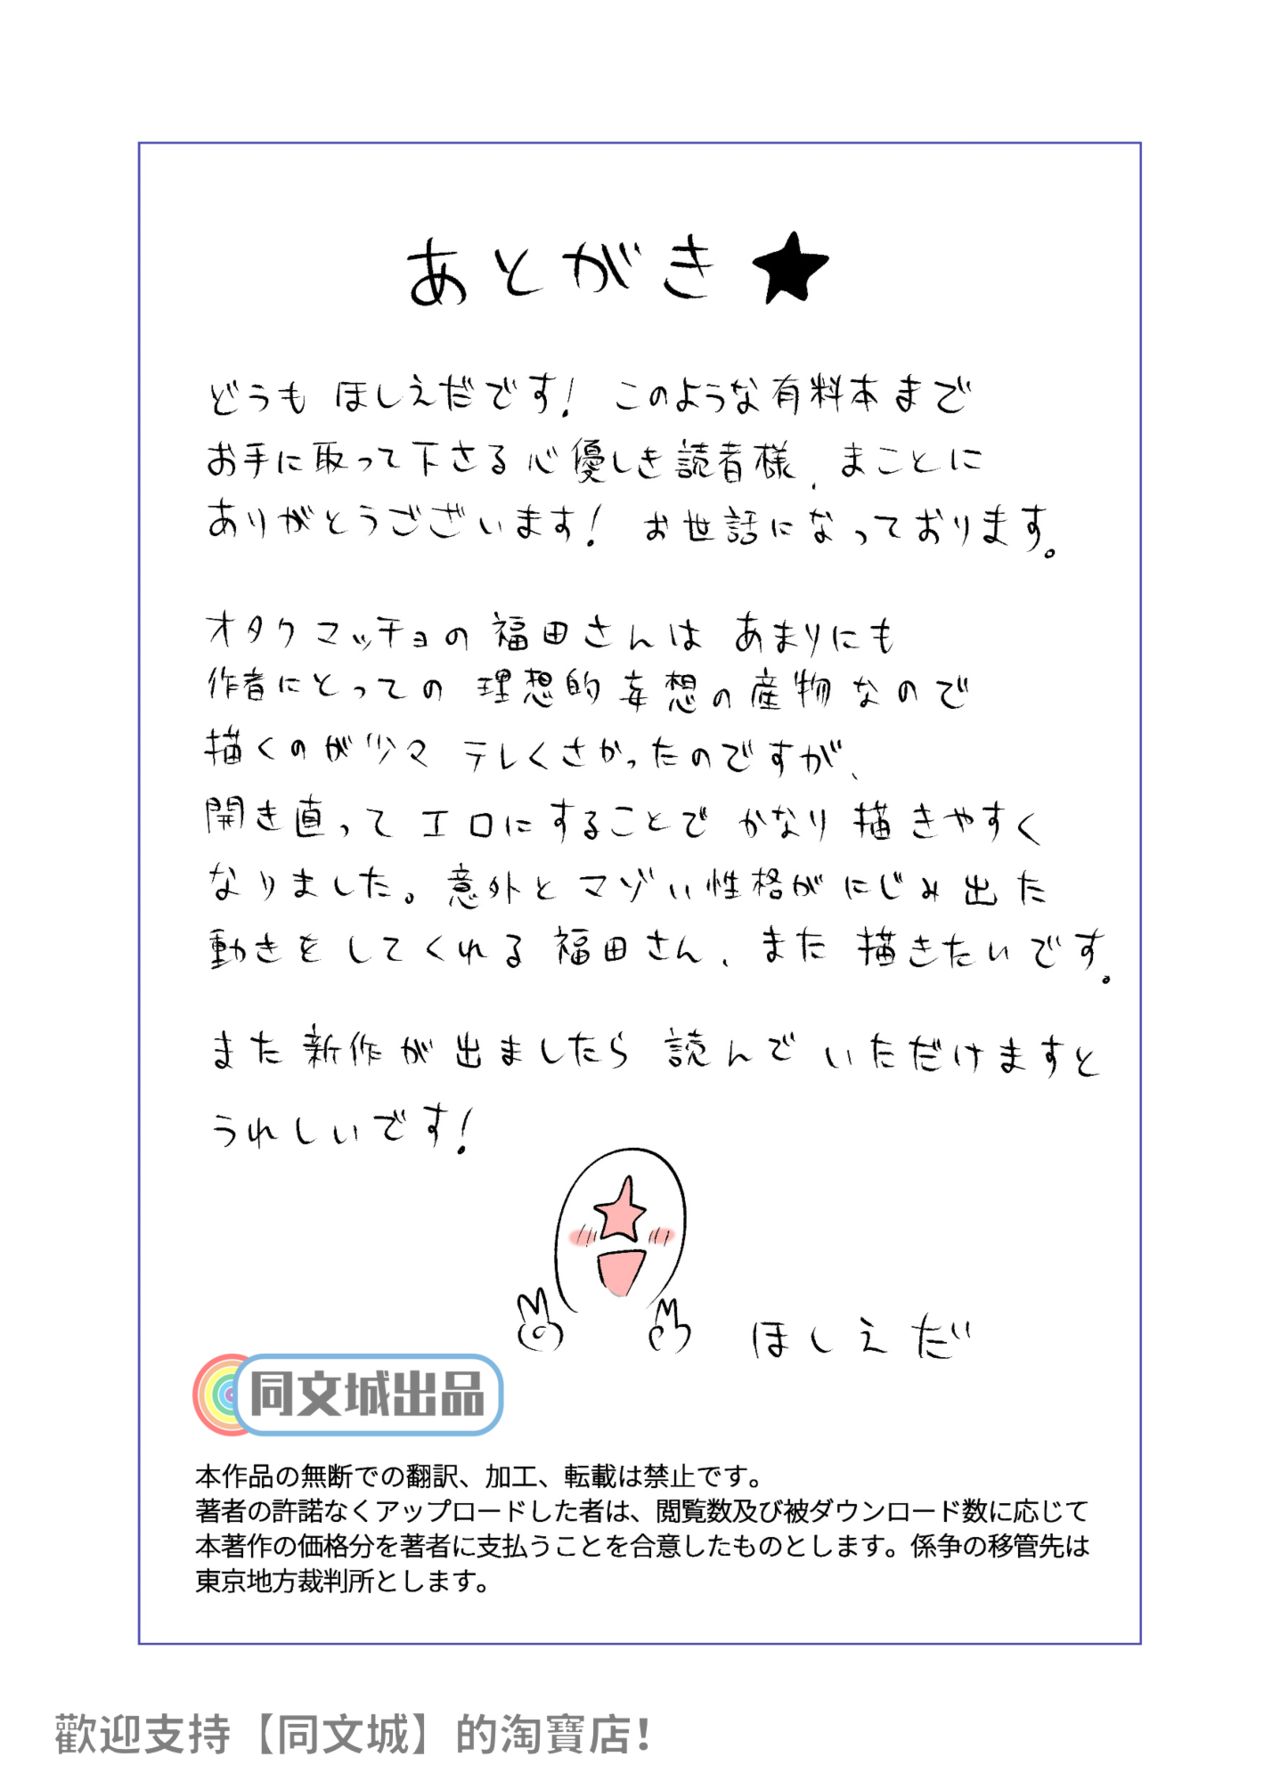 あとがき★
どうも ほしえだです! このような有料本まで
お手に取って下さる心優しき読者様、まことに
ありがとうございます! お世話になっております。
オタクマッチョの福田さんは あまりにも
作者にとっての 理想的妄想の産物なので
描くのが少々 テレくさかったのですが、
開き直って エロにすることで かなり描きやすく
なりました。意外と マゾい性格がにじみ出た
動きを してくれる 福田さん、また 描きたいです。
また新作が出ましたら 読んで いただけますと
うれしいです!
ほしえだ
同文城出品
本作品の無断での翻訳、加工、転載は禁止です。
著者の許諾なくアップロードした者は、閲覧数及び被ダウンロード数に応じて
本著作の価格分を著者に支払うことを合意したものとします。係争の移管先は
東京地方裁判所とします。
歡迎支持【同文城】的淘寶店!